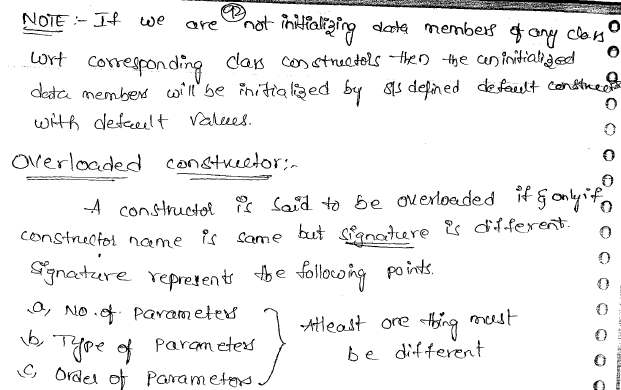 92
NOTE :- If we are not initializing data members of any class
wrt corresponding class constructors then the uninitialized
data members will be initialized by s/s defined default constructor
with default values.
Overloaded constructor:-
A constructor is said to be overloaded if & only if
constructor name is same but signature is different.
Signature represents the following points.
a, No. of parameters
b, Type of parameters
c, Order of parameters
Atleast one thing must
be different